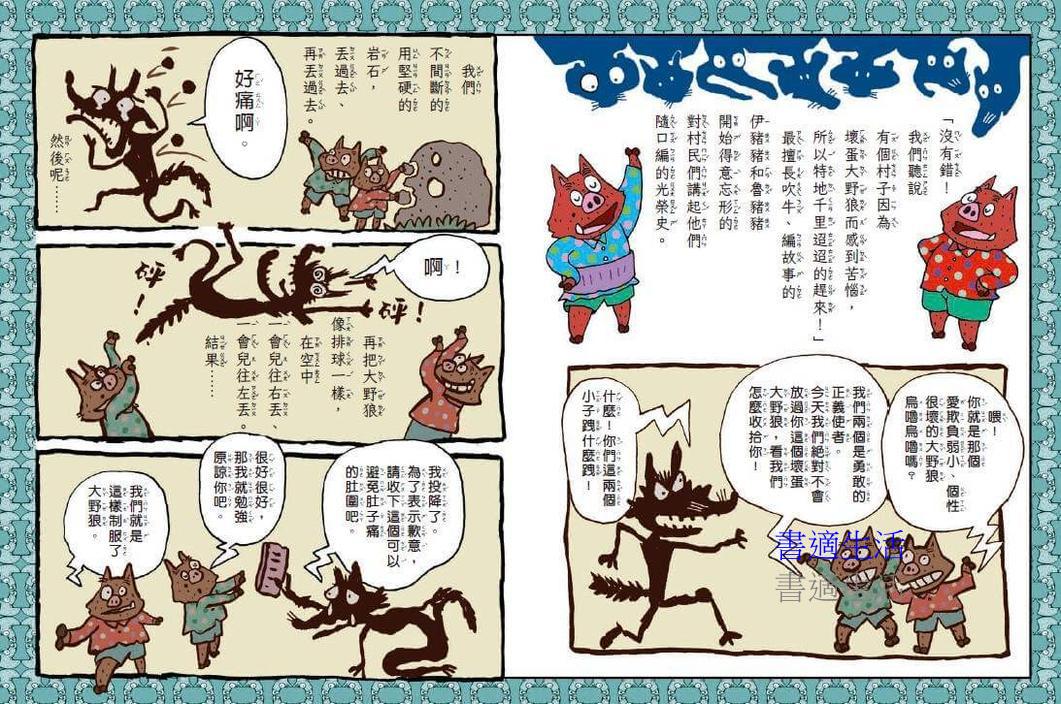 「沒有錯！
我們聽說
有個村子因為
壞蛋大野狼而感到苦惱，
所以特地千里迢迢的趕來！」
最擅長吹牛、編故事的
伊豬豬和魯豬豬
開始得意忘形的
對村民們講起他們
隨口編的光榮史。
喂！
你就是那個
愛欺負弱小、個性
很壞的大野狼
烏嚕烏嚕嗎？
我們兩個是勇敢的
正義使者。
今天我們絕對不會
放過你這個壞蛋
大野狼，看我們
怎麼收拾你！
什麼！你們這兩個
小子跩什麼跩！
書適生活
書適
我們
不間斷的
用堅硬的
岩石，
丟過去、
再丟過去。
好痛啊。
然後呢……
啊！
砰！
砰！
再把大野狼
像排球一樣，
在空中
一會兒往右丟、
一會兒往左丟。
結果……
我投降了。
為了表示歉意，
請收下這個可以
避免肚子痛
的肚圍吧。
很好很好，
那我就勉強
原諒你吧。
我們就是
這樣制服了
大野狼。